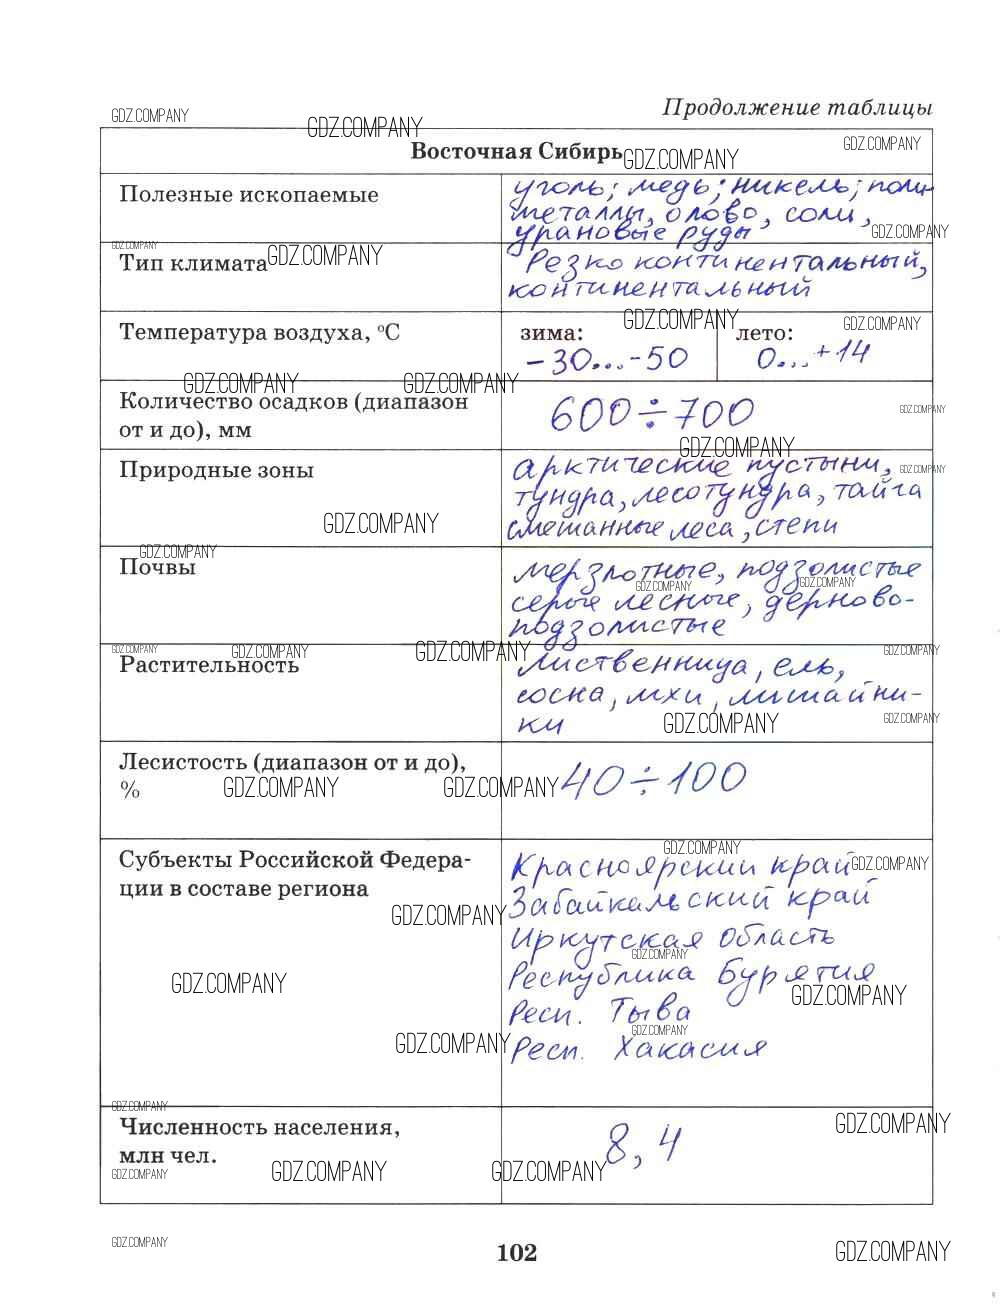 Продолжение таблицы
GDZ.COMPANY
GDZ.COMPANY
Восточная Сибирь
GDZ.COMPANY
GDZ.COMPANY
Полезные ископаемые
уголь; медь; никель; поли-
металлы, олово, соли,
урановые руды
GDZ.COMPANY
GDZ.COMPANY
Тип климата
GDZ.COMPANY
Резко континентальный,
континентальный
GDZ.COMPANY
GDZ.COMPANY
Температура воздуха, °С
зима:
-30...-50
лето:
0...+14
GDZ.COMPANY
GDZ.COMPANY
Количество осадков (диапазон
от и до), мм
600÷700
GDZ.COMPANY
GDZ.COMPANY
Природные зоны
арктические пустыни,
тундра, лесотундра, тайга
смешанные леса, степи
GDZ.COMPANY
GDZ.COMPANY
GDZ.COMPANY
Почвы
мерзлотные, подзолистые
серые лесные, дерново-
подзолистые
GDZ.COMPANY
GDZ.COMPANY
GDZ.COMPANY
GDZ.COMPANY
GDZ.COMPANY
GDZ.COMPANY
Растительность
лиственница, ель,
сосна, мхи, лишайни-
ки
GDZ.COMPANY
GDZ.COMPANY
Лесистость (диапазон от и до),
%
40÷100
GDZ.COMPANY
GDZ.COMPANY
GDZ.COMPANY
Субъекты Российской Федера-
ции в составе региона
Красноярский край
GDZ.COMPANY
Забайкальский край
GDZ.COMPANY
Иркутская область
GDZ.COMPANY
Республика Бурятия
GDZ.COMPANY
GDZ.COMPANY
Респ. Тыва
GDZ.COMPANY
GDZ.COMPANY
Респ. Хакасия
GDZ.COMPANY
Численность населения,
млн чел.
8,4
GDZ.COMPANY
GDZ.COMPANY
GDZ.COMPANY
GDZ.COMPANY
GDZ.COMPANY
102
GDZ.COMPANY